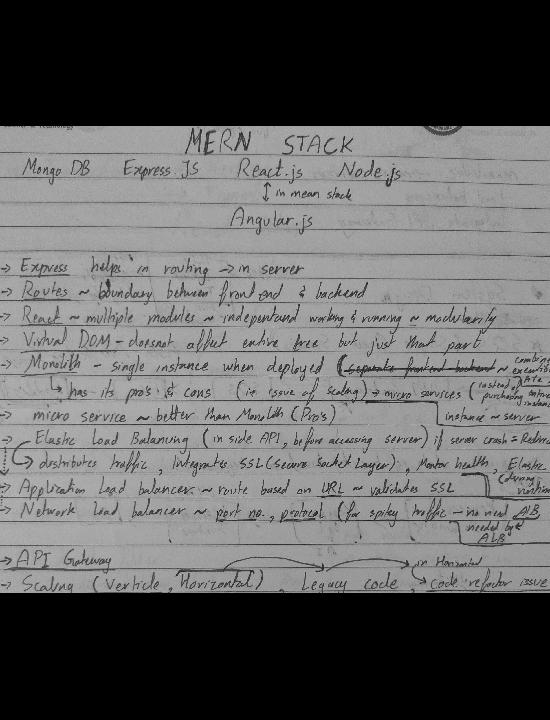 MERN STACK
Mongo DB Express JS React.js Node.js
↕ in mean stack
Angular.js
→ Express helps in routing → in server
→ Routes ~ boundary between front end & backend
→ React ~ multiple modules ~ independand working & running ~ modularity
→ Virtual DOM - doesnot affect entire tree but just that part
→ Monolith - single instance when deployed (separate frontend backend ~ combine
↳ has its pro's & cons (ie issue of scaling) → micro services (instead of purchasing entire instance)
instance ~ server
→ micro service ~ better than Monolith (Pro's)
→ Elastic Load Balancing (in side API, before accessing server) if server crash =
→ distributes traffic, integrates SSL (Secure Socket Layer), Montor health, Elastic
(during runtime
→ Application Load balancer ~ route based on URL ~ validates SSL
→ Network Load balancer ~ port no., protocol (for spikey traffic - no need ALB
needed by ALB
→ API Gateway
in Horizontal
→ Scaling (Verticle, Horizontal), Legacy code, → code refactor issue